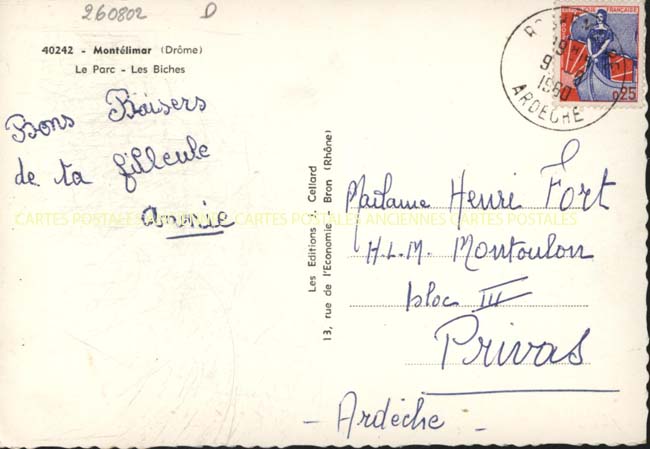 260802 D
40242 - Montélimar (Drôme)
Le Parc - Les Biches
Bons Baisers
de ta filleule
Annie
Les Editions J. Cellard
13, rue de l'Economie - Bron (Rhône)
Madame Henri Fort
H.L.M. Montoulon
bloc III
Privas
- Ardèche -
1960
ARDECHE
0,25
CARTES POSTALES ANCIENNES CARTES POSTALES ANCIENNES CARTES POSTALES